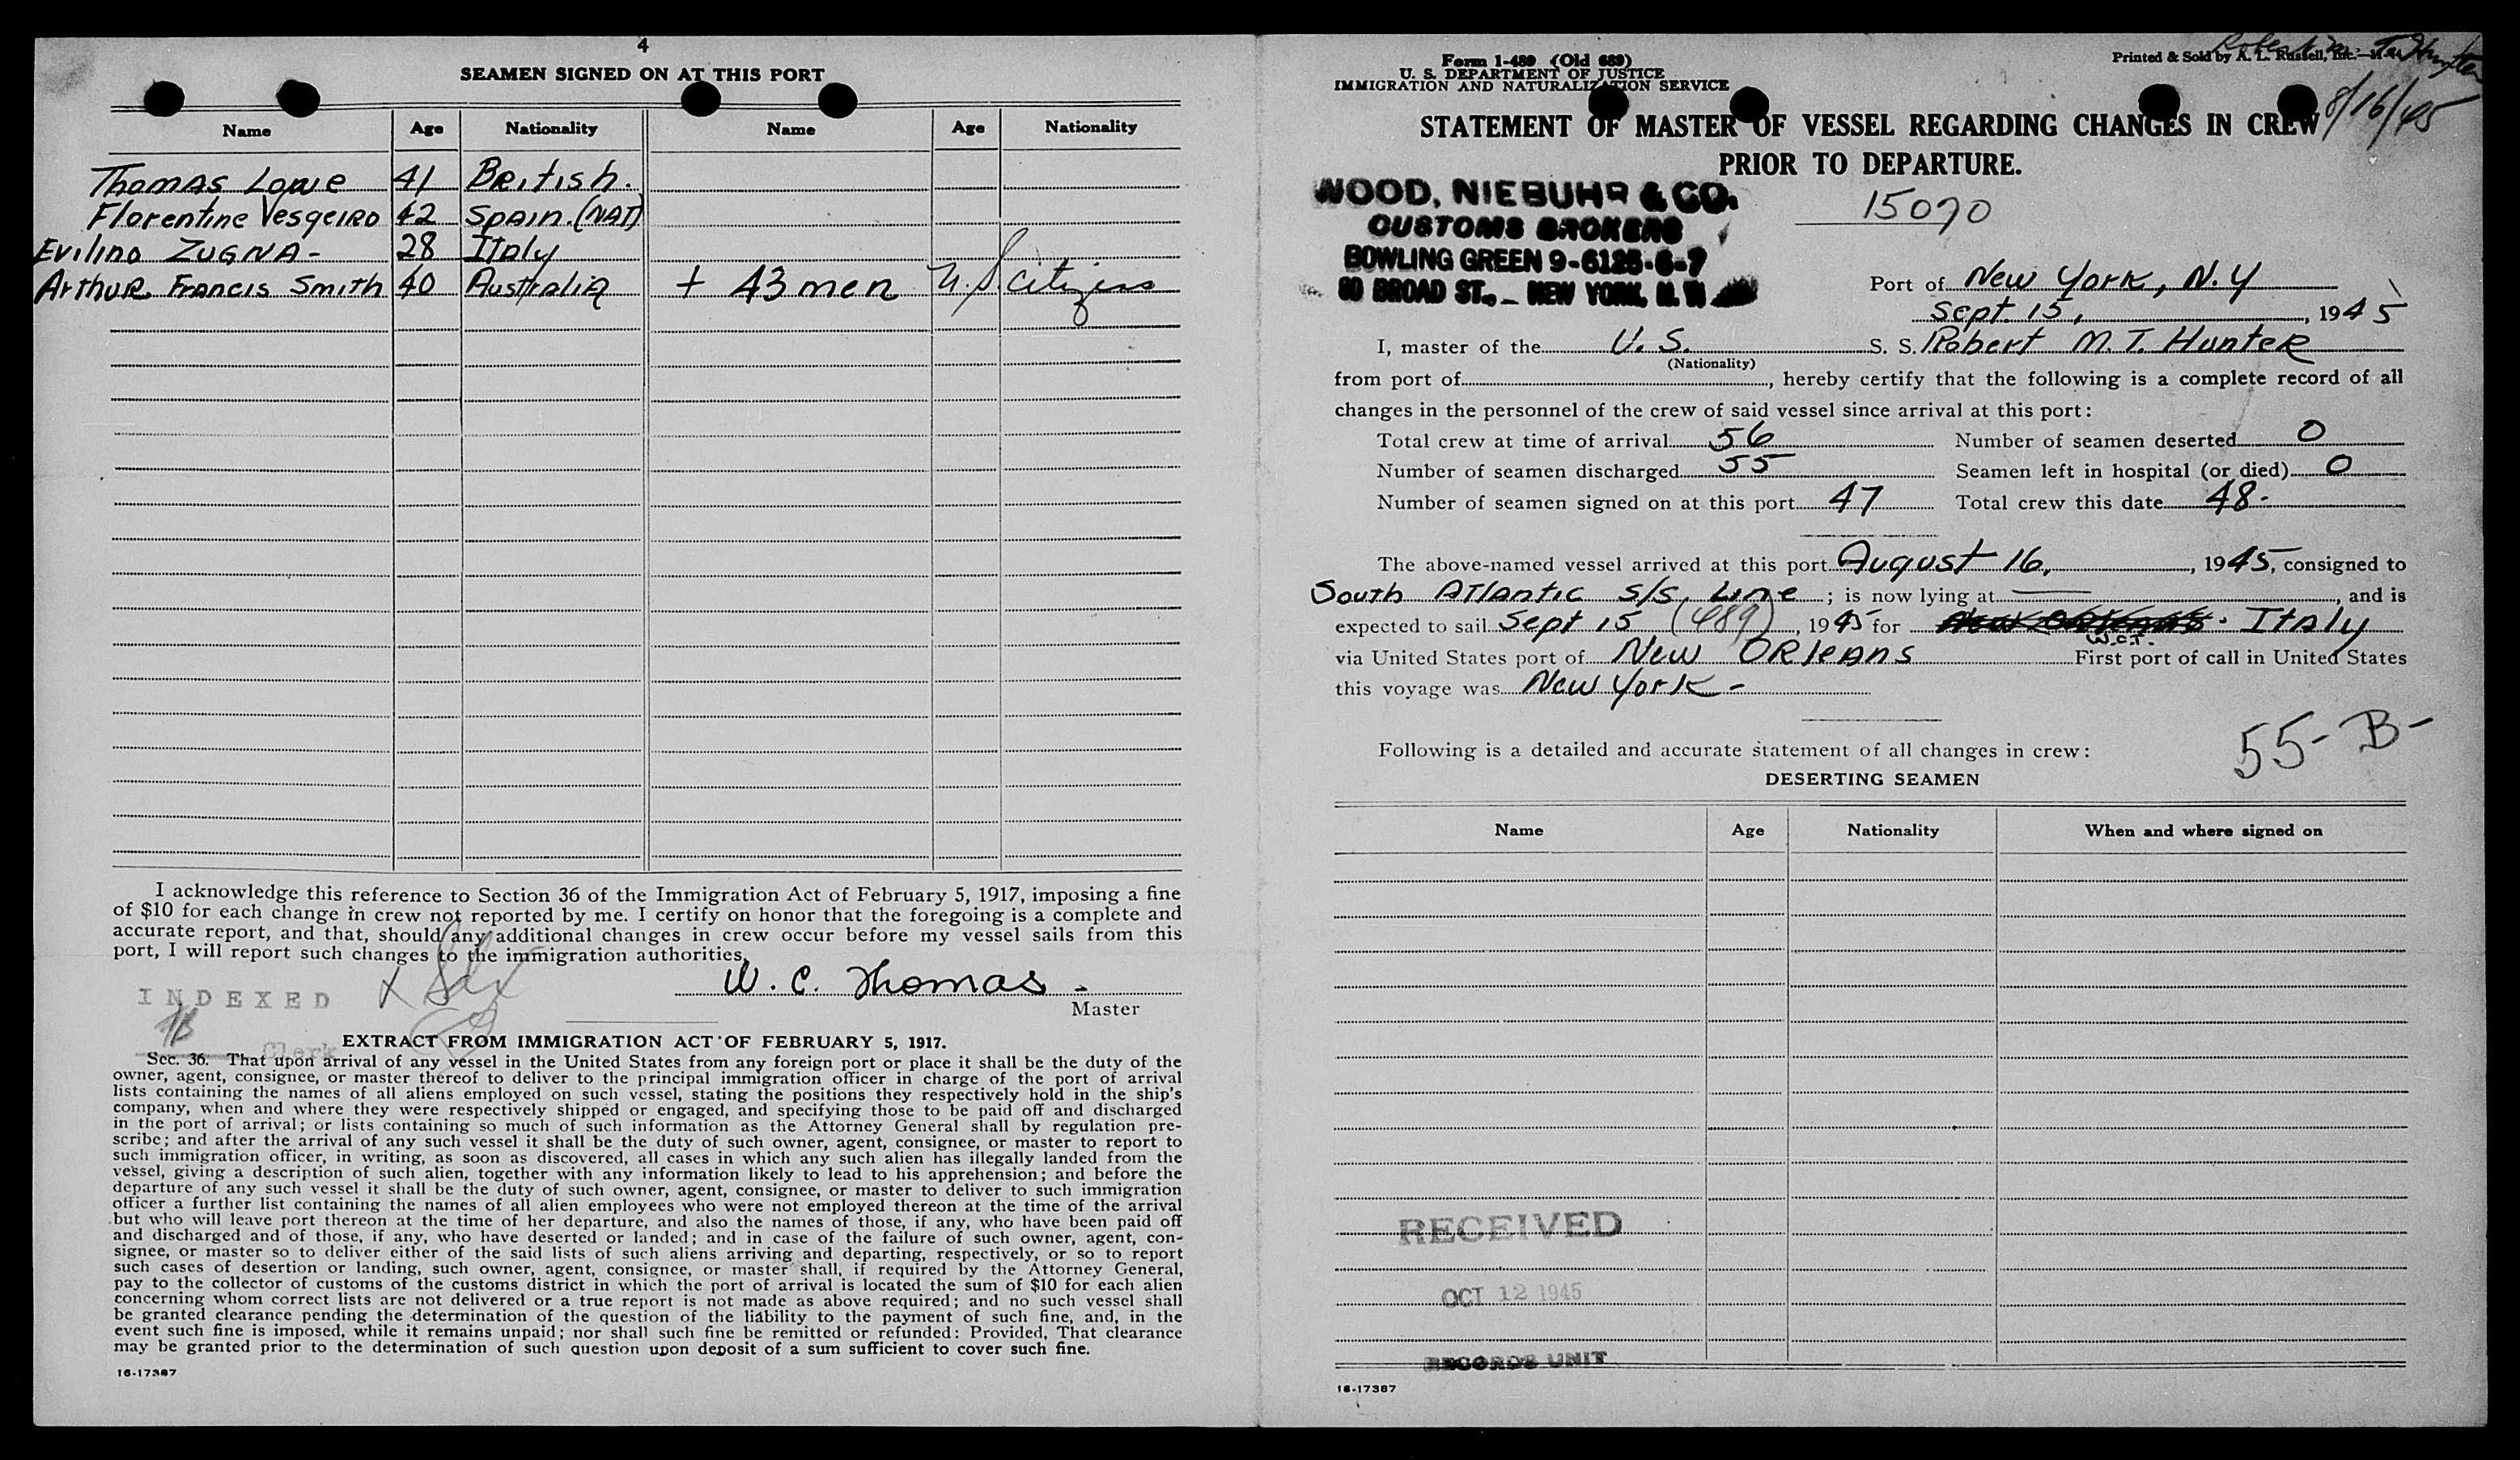 4
SEAMEN SIGNED ON AT THIS PORT
Name Age Nationality Name Age Nationality
Thomas Lowe 41 British.
Florentine Vesqeiro 42 Spain. (NAT)
Evilino ZUGNA - 28 Italy
Arthur Francis Smith 40 Australia + 43 men U.S. citizens
I acknowledge this reference to Section 36 of the Immigration Act of February 5, 1917, imposing a fine
of $10 for each change in crew not reported by me. I certify on honor that the foregoing is a complete and
accurate report, and that, should any additional changes in crew occur before my vessel sails from this
port, I will report such changes to the immigration authorities.
W. C. Thomas -
Master
INDEXED
Clerk
EXTRACT FROM IMMIGRATION ACT OF FEBRUARY 5, 1917.
Sec. 36. That upon arrival of any vessel in the United States from any foreign port or place it shall be the duty of the
owner, agent, consignee, or master thereof to deliver to the principal immigration officer in charge of the port of arrival
lists containing the names of all aliens employed on such vessel, stating the positions they respectively hold in the ship's
company, when and where they were respectively shipped or engaged, and specifying those to be paid off and discharged
in the port of arrival; or lists containing so much of such information as the Attorney General shall by regulation pre-
scribe; and after the arrival of any such vessel it shall be the duty of such owner, agent, consignee, or master to report to
such immigration officer, in writing, as soon as discovered, all cases in which any such alien has illegally landed from the
vessel, giving a description of such alien, together with any information likely to lead to his apprehension; and before the
departure of any such vessel it shall be the duty of such owner, agent, consignee, or master to deliver to such immigration
officer a further list containing the names of all alien employees who were not employed thereon at the time of the arrival
but who will leave port thereon at the time of her departure, and also the names of those, if any, who have been paid off
and discharged and of those, if any, who have deserted or landed; and in case of the failure of such owner, agent, con-
signee, or master so to deliver either of the said lists of such aliens arriving and departing, respectively, or so to report
such cases of desertion or landing, such owner, agent, consignee, or master shall, if required by the Attorney General,
pay to the collector of customs of the customs district in which the port of arrival is located the sum of $10 for each alien
concerning whom correct lists are not delivered or a true report is not made as above required; and no such vessel shall
be granted clearance pending the determination of the question of the liability to the payment of such fine, and, in the
event such fine is imposed, while it remains unpaid; nor shall such fine be remitted or refunded: Provided, That clearance
may be granted prior to the determination of such question upon deposit of a sum sufficient to cover such fine.
16-17387
Form I-489 (Old 689)
U. S. DEPARTMENT OF JUSTICE
IMMIGRATION AND NATURALIZATION SERVICE
Printed & Sold by A. L. Russell, Inc.
8/16/45
STATEMENT OF MASTER OF VESSEL REGARDING CHANGES IN CREW
PRIOR TO DEPARTURE.
WOOD, NIEBUHR & CO.
CUSTOMS BROKERS
BOWLING GREEN 9-6125-6-7
80 BROAD ST., - NEW YORK, N. Y.
15070
Port of New York, N.Y
Sept. 15, , 1945
I, master of the U. S. S. S. Robert M. T. Hunter
(Nationality)
from port of , hereby certify that the following is a complete record of all
changes in the personnel of the crew of said vessel since arrival at this port:
Total crew at time of arrival 56 Number of seamen deserted 0
Number of seamen discharged 55 Seamen left in hospital (or died) 0
Number of seamen signed on at this port 47 Total crew this date 48-
The above-named vessel arrived at this port August 16, , 1945, consigned to
South Atlantic S/S Line ; is now lying at — , and is
expected to sail Sept 15 (489) , 1945 for New Orleans. Italy
W.C.T.
via United States port of New Orleans First port of call in United States
this voyage was New York -
55-B-
Following is a detailed and accurate statement of all changes in crew:
DESERTING SEAMEN
Name Age Nationality When and where signed on
RECEIVED
OCT 12 1945
RECORDS UNIT
16-17387